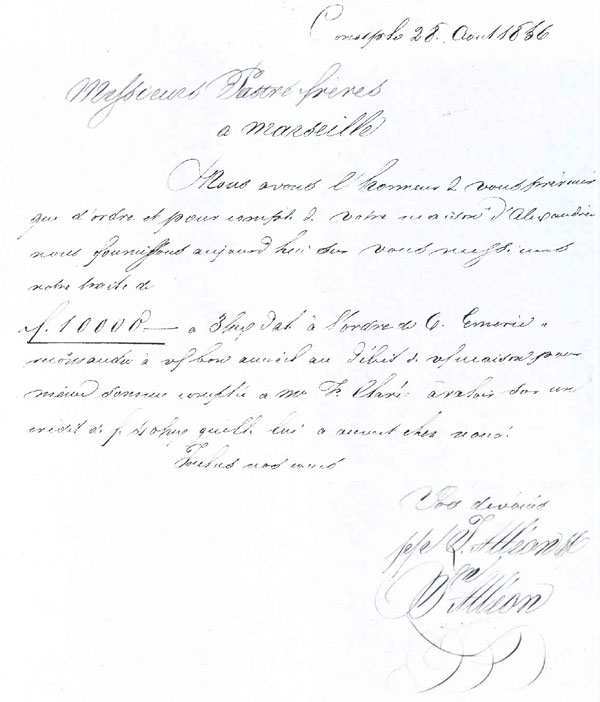 Constple 28. Aout 1866
Messieurs Pastré frères
a Marseille
Nous avons l'honneur de vous prévenir
que d'ordre et pour compte de votre maison d'Alexandrie
nous fournissons aujourd'hui sur vous messieurs
notre traite de
f. 10000 — a 3% dat à l'ordre de C. Emerie
à bon accueil au débit de maison pour
même somme comptée a Mr a valoir sur un
crédit de f. qu'elle lui a ouvert chez nous.
nos
Vos dévoués
pp J. Alléon &C
Alléon